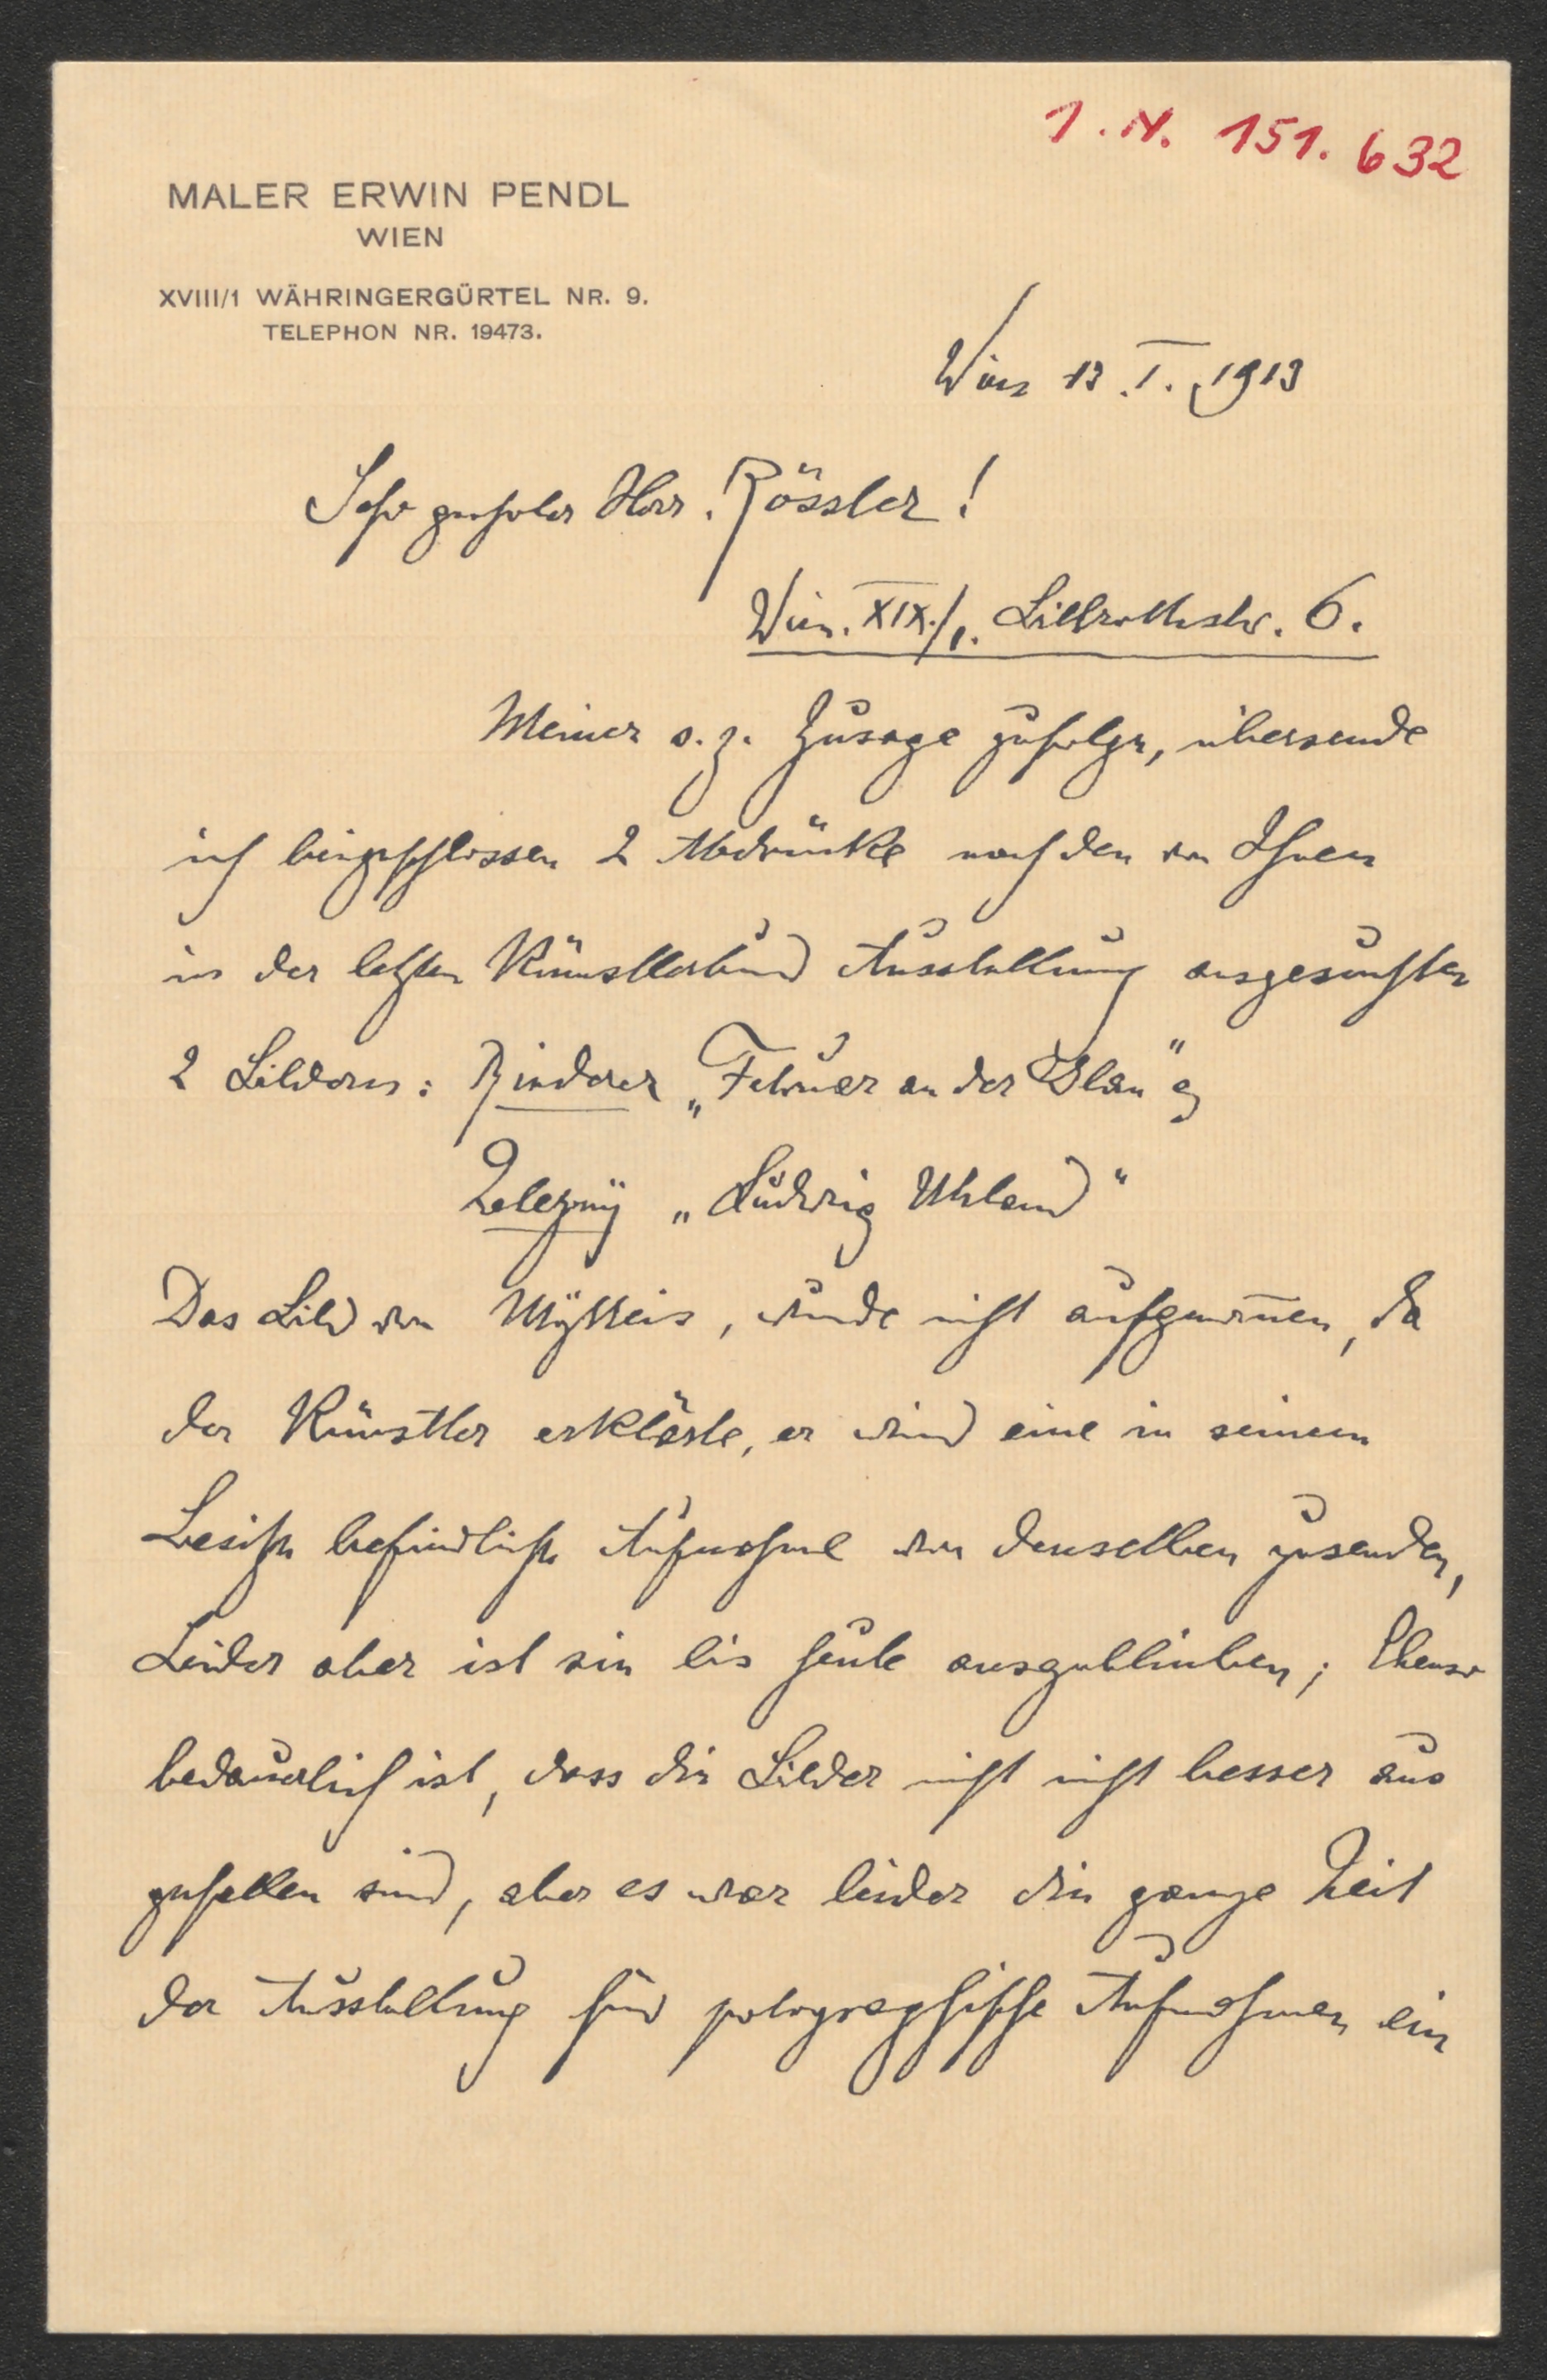 I. N. 151.632
MALER ERWIN PENDL
WIEN
XVIII/1 WÄHRINGERGÜRTEL NR. 9.
TELEPHON NR. 19473.
Wien 13.I.1913
Sehr geehrter Herr Rössler!
Wien. XIX./1. Billrothstr. 6.
Meiner s. z. Zusage zufolge, übersende
ich beigeschlossen 2 Abdrücke nach den von Ihnen
in der letzten Künstlerbund Ausstellung ausgesuchten
2 Bildern: Rinderer „Februar an der Glan" &
Zelezny „Ludwig Uhland"
Das Bild von , wurde nicht aufgenom̅en, da
der Künstler erklärte, er wird eine in seinem
Besitze befindliche Aufnahme von denselben zusenden,
Leider aber ist sie bis heute ausgeblieben; Ebenso
bedauerlich ist, dass die Bilder nicht nicht besser aus
gefallen sind, aber es war leider die ganze Zeit
der Ausstellung für potographische Aufnahmen ein